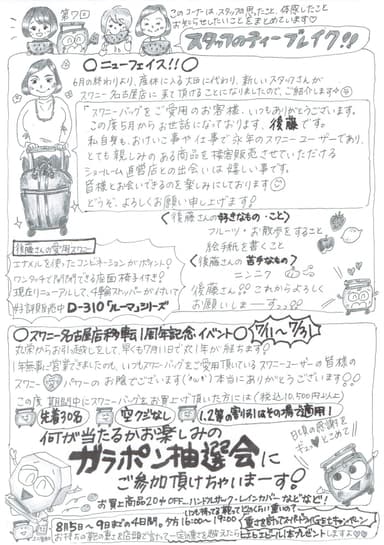 第7回
このコーナーは、スタッフの思ったこと、体感したこと
お知らせしたいことをまとめています♡
スタッフのティーブレイク!!
○ニューフェイス!!○
6月の終わりより、産休に入る大田に代わり、新しいスタッフさんが
スワニー名古屋店に来て頂けることになりましたので、ご紹介します
「スワニーバッグをご愛用のお客様、いつもありがとうございます。
この度5月からお世話になっております、後藤です。
私自身も、おけいこ事や仕事で永年のスワニーユーザーであり、
とても親しみのある商品を接客販売させていただける
ショールーム直営店との出会いは嬉しい事です。
皆様とお会いできるのを楽しみにしております
どうぞ、よろしくお願い申し上げます!
〈後藤さんの好きなもの・こと〉
フルーツ・お散歩をすること
絵手紙を書くこと
〈後藤さんの苦手なもの〉
ニンニク
後藤さん!!これからよろしく
お願いしまーすっっ!!
後藤さんの愛用スワニー
エナメルを使ったコンビネーションがポイント!
ワンタッチで開閉できる座面椅子付き!
現在リニューアルして、4輪ストッパーが付いて
好評販売中 D-310「ルーマ」シリーズ
○スワニー名古屋店移転1周年記念イベント○ 7/11〜7/31
丸栄からお引越しをして、早くも7月11日で丸1年が経ちます!
1年無事に営業できましたのも、いつもスワニーバッグをご愛用頂いているスワニーユーザーの皆様の
スワニー♡パワーのお陰でございます(^ω^)本当にありがとうございます!!
この度期間中にスワニーバッグをお買上げ頂いた方には(税込10,500円以上)
先着30名 空クジなし 1,2等の割引はその場で適用!
何が当たるかお楽しみの
ガラポン抽選会に
ご参加頂けちゃいまーす!
日頃の感謝を
ギュッとこめて
お買上商品20%OFF、ハンドルサーク・レインカバーなどなど!
8月5日〜9日までの4日間。夕方16:00〜19:00